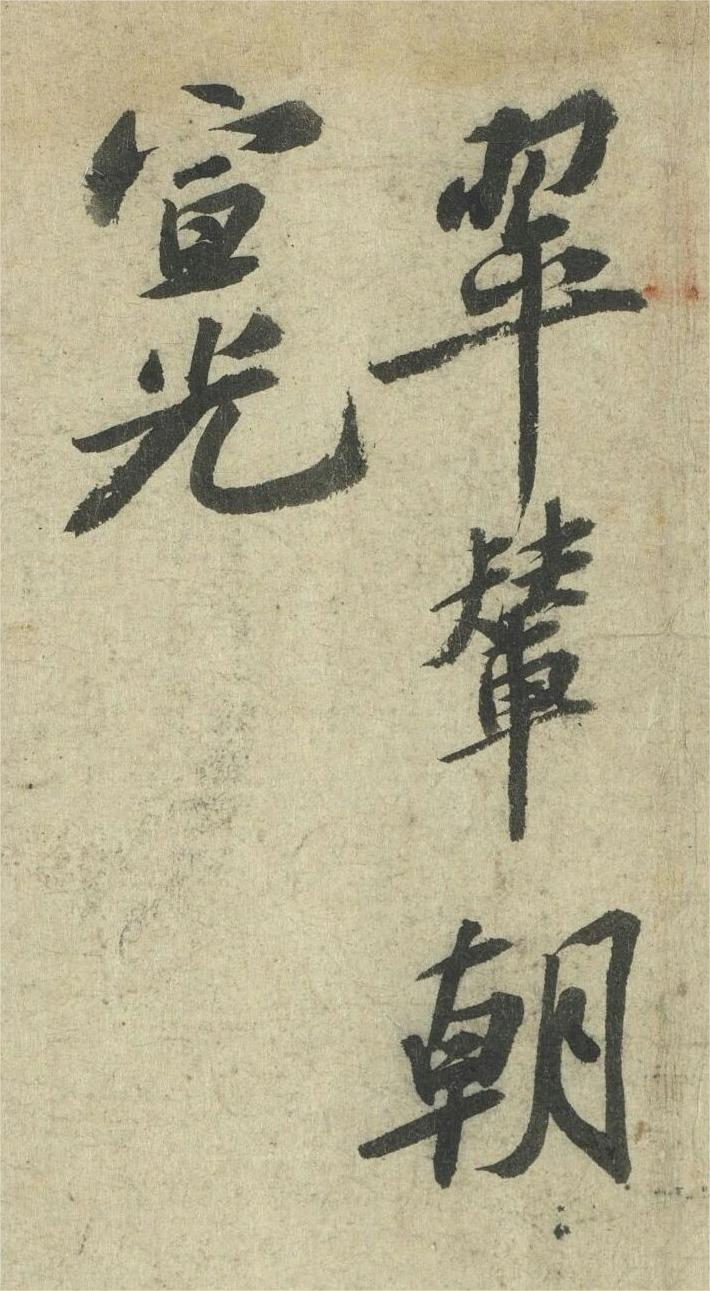 翠輦朝
宣光